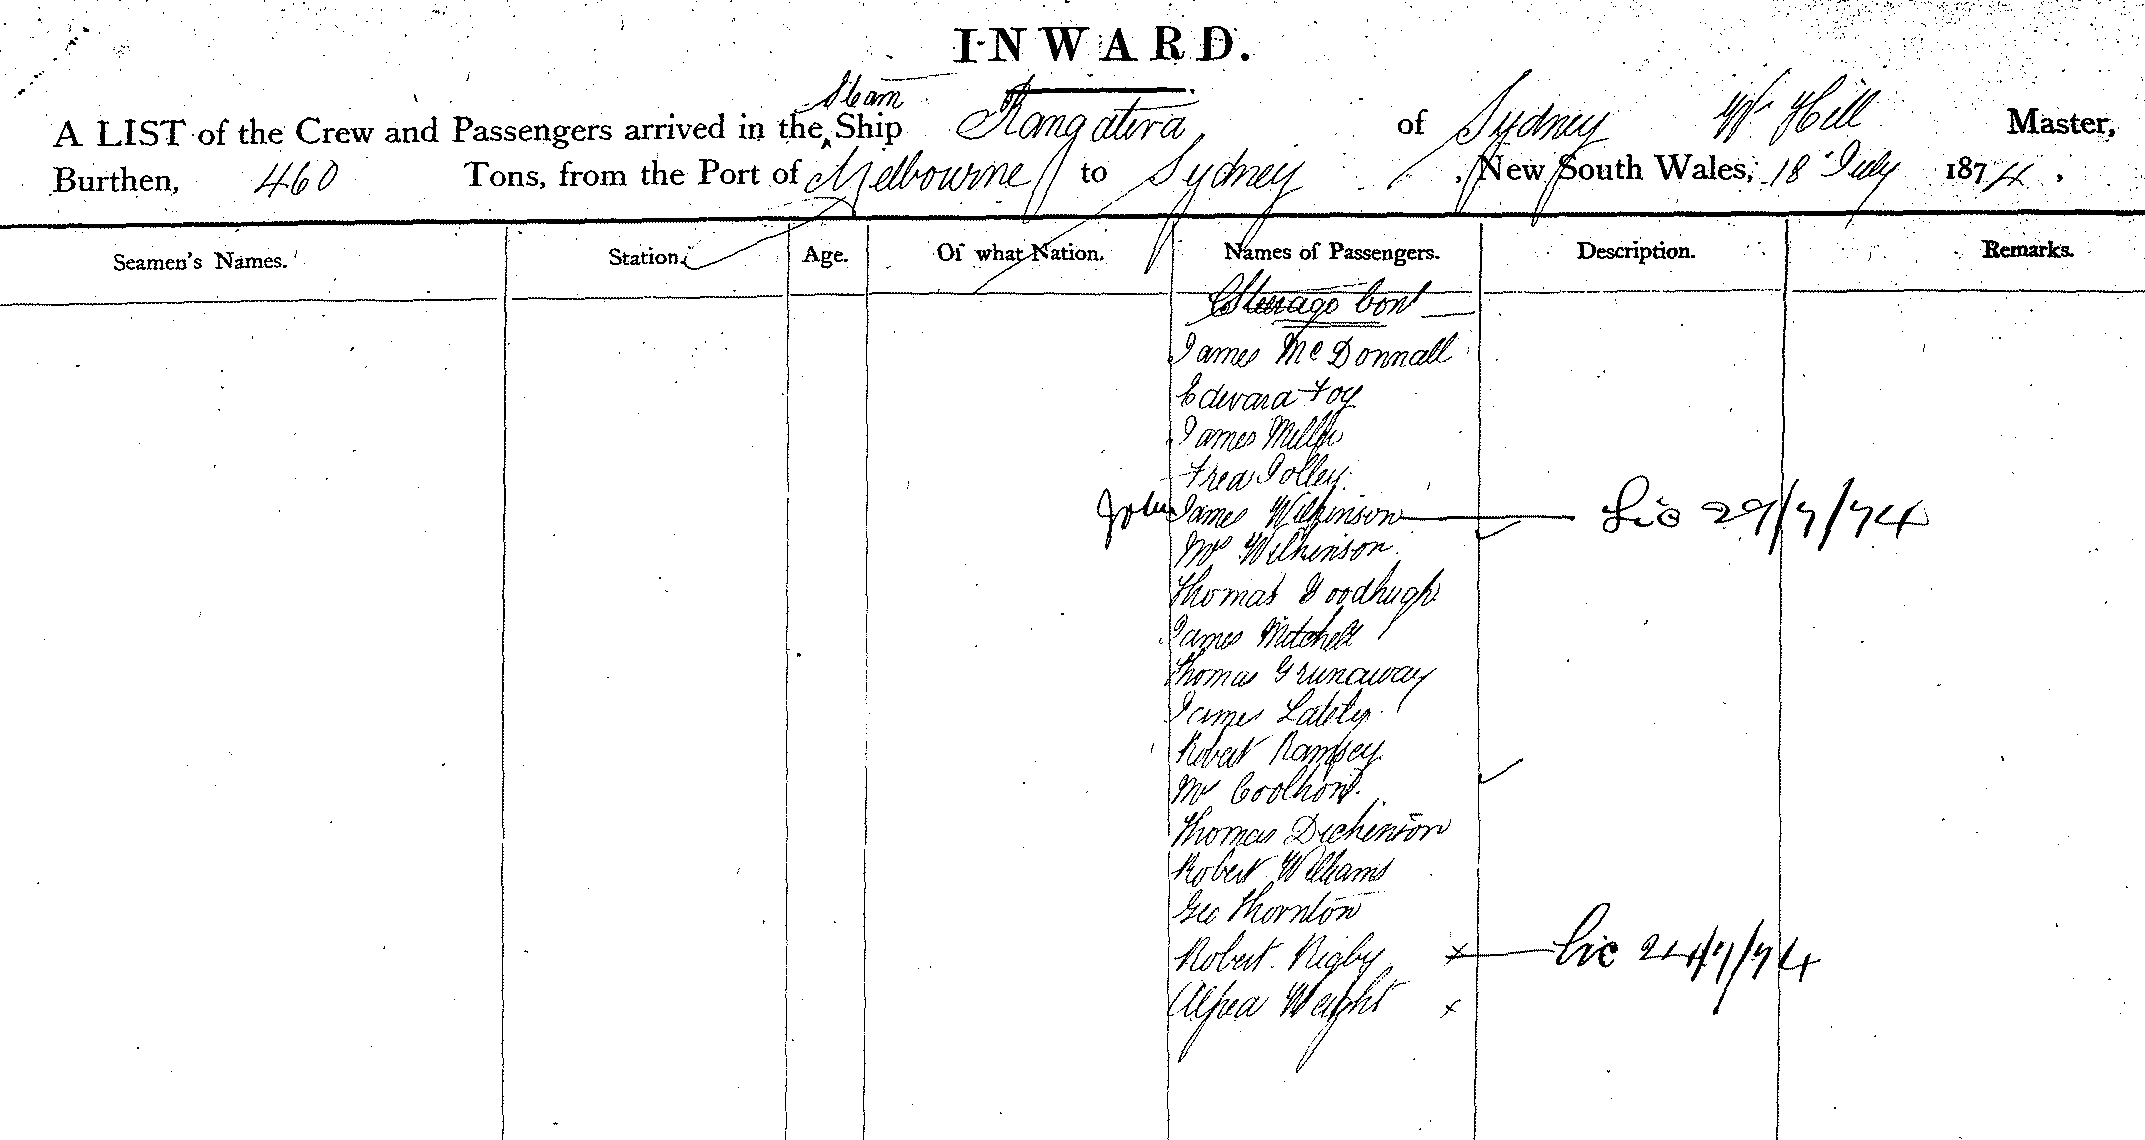 INWARD.
Steam
A LIST of the Crew and Passengers arrived in the Ship Rangatira of Sydney Wm Hill Master,
Burthen, 460 Tons, from the Port of Melbourne to Sydney, New South Wales, 18 July 1874.
Seamen's Names. Station. Age. Of what Nation. Names of Passengers. Description. Remarks.
Steerage Cont
James McDonnall
Edward Foy
James Miller
Fred Jolley
John James Wilkinson Lic 29/7/74
Mrs Wilkinson
Thomas Goodhugh
James Mitchell
Thomas Grunaway
James
Robert Ramsey
Mr
Thomas Dickenson
Robert Williams
Geo Thornton
Robert Rigby x Lic 24/7/74
Alfred Weight x